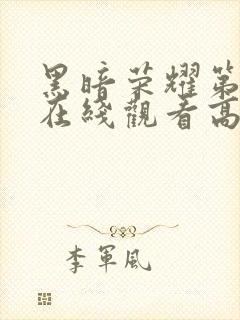 黑暗荣耀第
在綫觀看高
李軍風